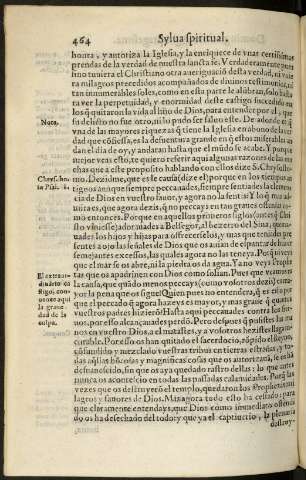 464 Sylua spiritual.
honra, y autoriza la Iglesia, y la enriquece de vnas certissimas
prendas de la verdad de nuestra sancta fe. Y verdaderamente quando
no tuuiera el Christiano otra aueriguació desta verdad, ni viera
milagros precedidos acompañados de diuinos testimonios, ni
tan innumerables soles, como en esta parte le alúbran, solo basta
ra ver la perpetuidad, y enormidad deste castigo sucedido en
los q̃ quitaron la vida al hijo de Dios, para entender por el, que
su delicto no fue otro, ni su pudo ser fuese este. De adonde es q̃
vna de las mayores riquezas q̃ tiene la Iglesia en abono de la ver
dad que cófiessa, es la desuentura grande en q̃ estos miserables an
dan el dia de oy, y andaran hasta que el múdo se acabe. Y porque
mejor veas esto, te quiero referir aqui algunas razones de las mu
chas que a este proposito hablando con ellos dize S. Chrysosto-
mo. Dezidme, que es la causa (dize el) porque en los tiempos an
tiguos aunque siempre peccauades, siempre sentiades la clemen
cia de Dios en vuestro fauor, y agora no la sentis? Y lo q̃ mas ad-
mira es, que agora dezis, q̃ no peccays en tan graues ofensas co-
mo entonces. Porque en aquellos primeros siglos (antes q̃ Chri-
sto viniesse) adorauades a Belfegor, al bezerro del Sinai, quema-
uades los hijos y hijas para ofrecerselos, y mas que teniades pre
sentes a ojo las señales de Dios que os auian de espantar de hazer
semejantes excessos, las quales agora no las teneys. Porq̃ ni veys
que el mar se os abre, ni la piedra os da agua. Y a no veys Prophe
tas que os apadrinen con Dios como solian. Pues que veamos es
la causa, que quádo menos peccays (como vosotros dezis) es ma
yor la pena que os sigue? Quien pues no entendera, q̃ es cierto
que el peccado q̃ agora hazeys es mayor, y mas graue q̃ quantos
vuestros padres hizieró? Hasta aqui peccauades contra los sier-
nos, por esso alcançauades perdó. Pero despues q̃ pusistes las ma
nos en vuestro Dios, el a matastes, y a vosotros hezistes llaga in-
curable. Por esso os han quitado el sacerdocio, rópido el Reyno,
cófundido y mezclado vuestras tribus en tierras estrañas, y to-
das aq̃llas hóorosas y magnificas cosas que os autorizauá, se os há
desuanecido, sin que os aya quedado rastro dellas: lo que antes
nunca os acontecio en todas las passadas calamidades. Porq̃ las
vezes que os destruyeró el templo, quedaron los Prophetas, mi-
lagros y fauores de Dios. Mas agora todo esto ha cessado: para
que claramente entendays, que Dios como immediato offendi
do os ha desechado del todo: y que ya el captiuerio, la plenaria
destruy-
Nota.
Chrysost. ho
El extraor-
dinario ca
stigo, con-
uence aqui
la graue-
dad de la
culpa.